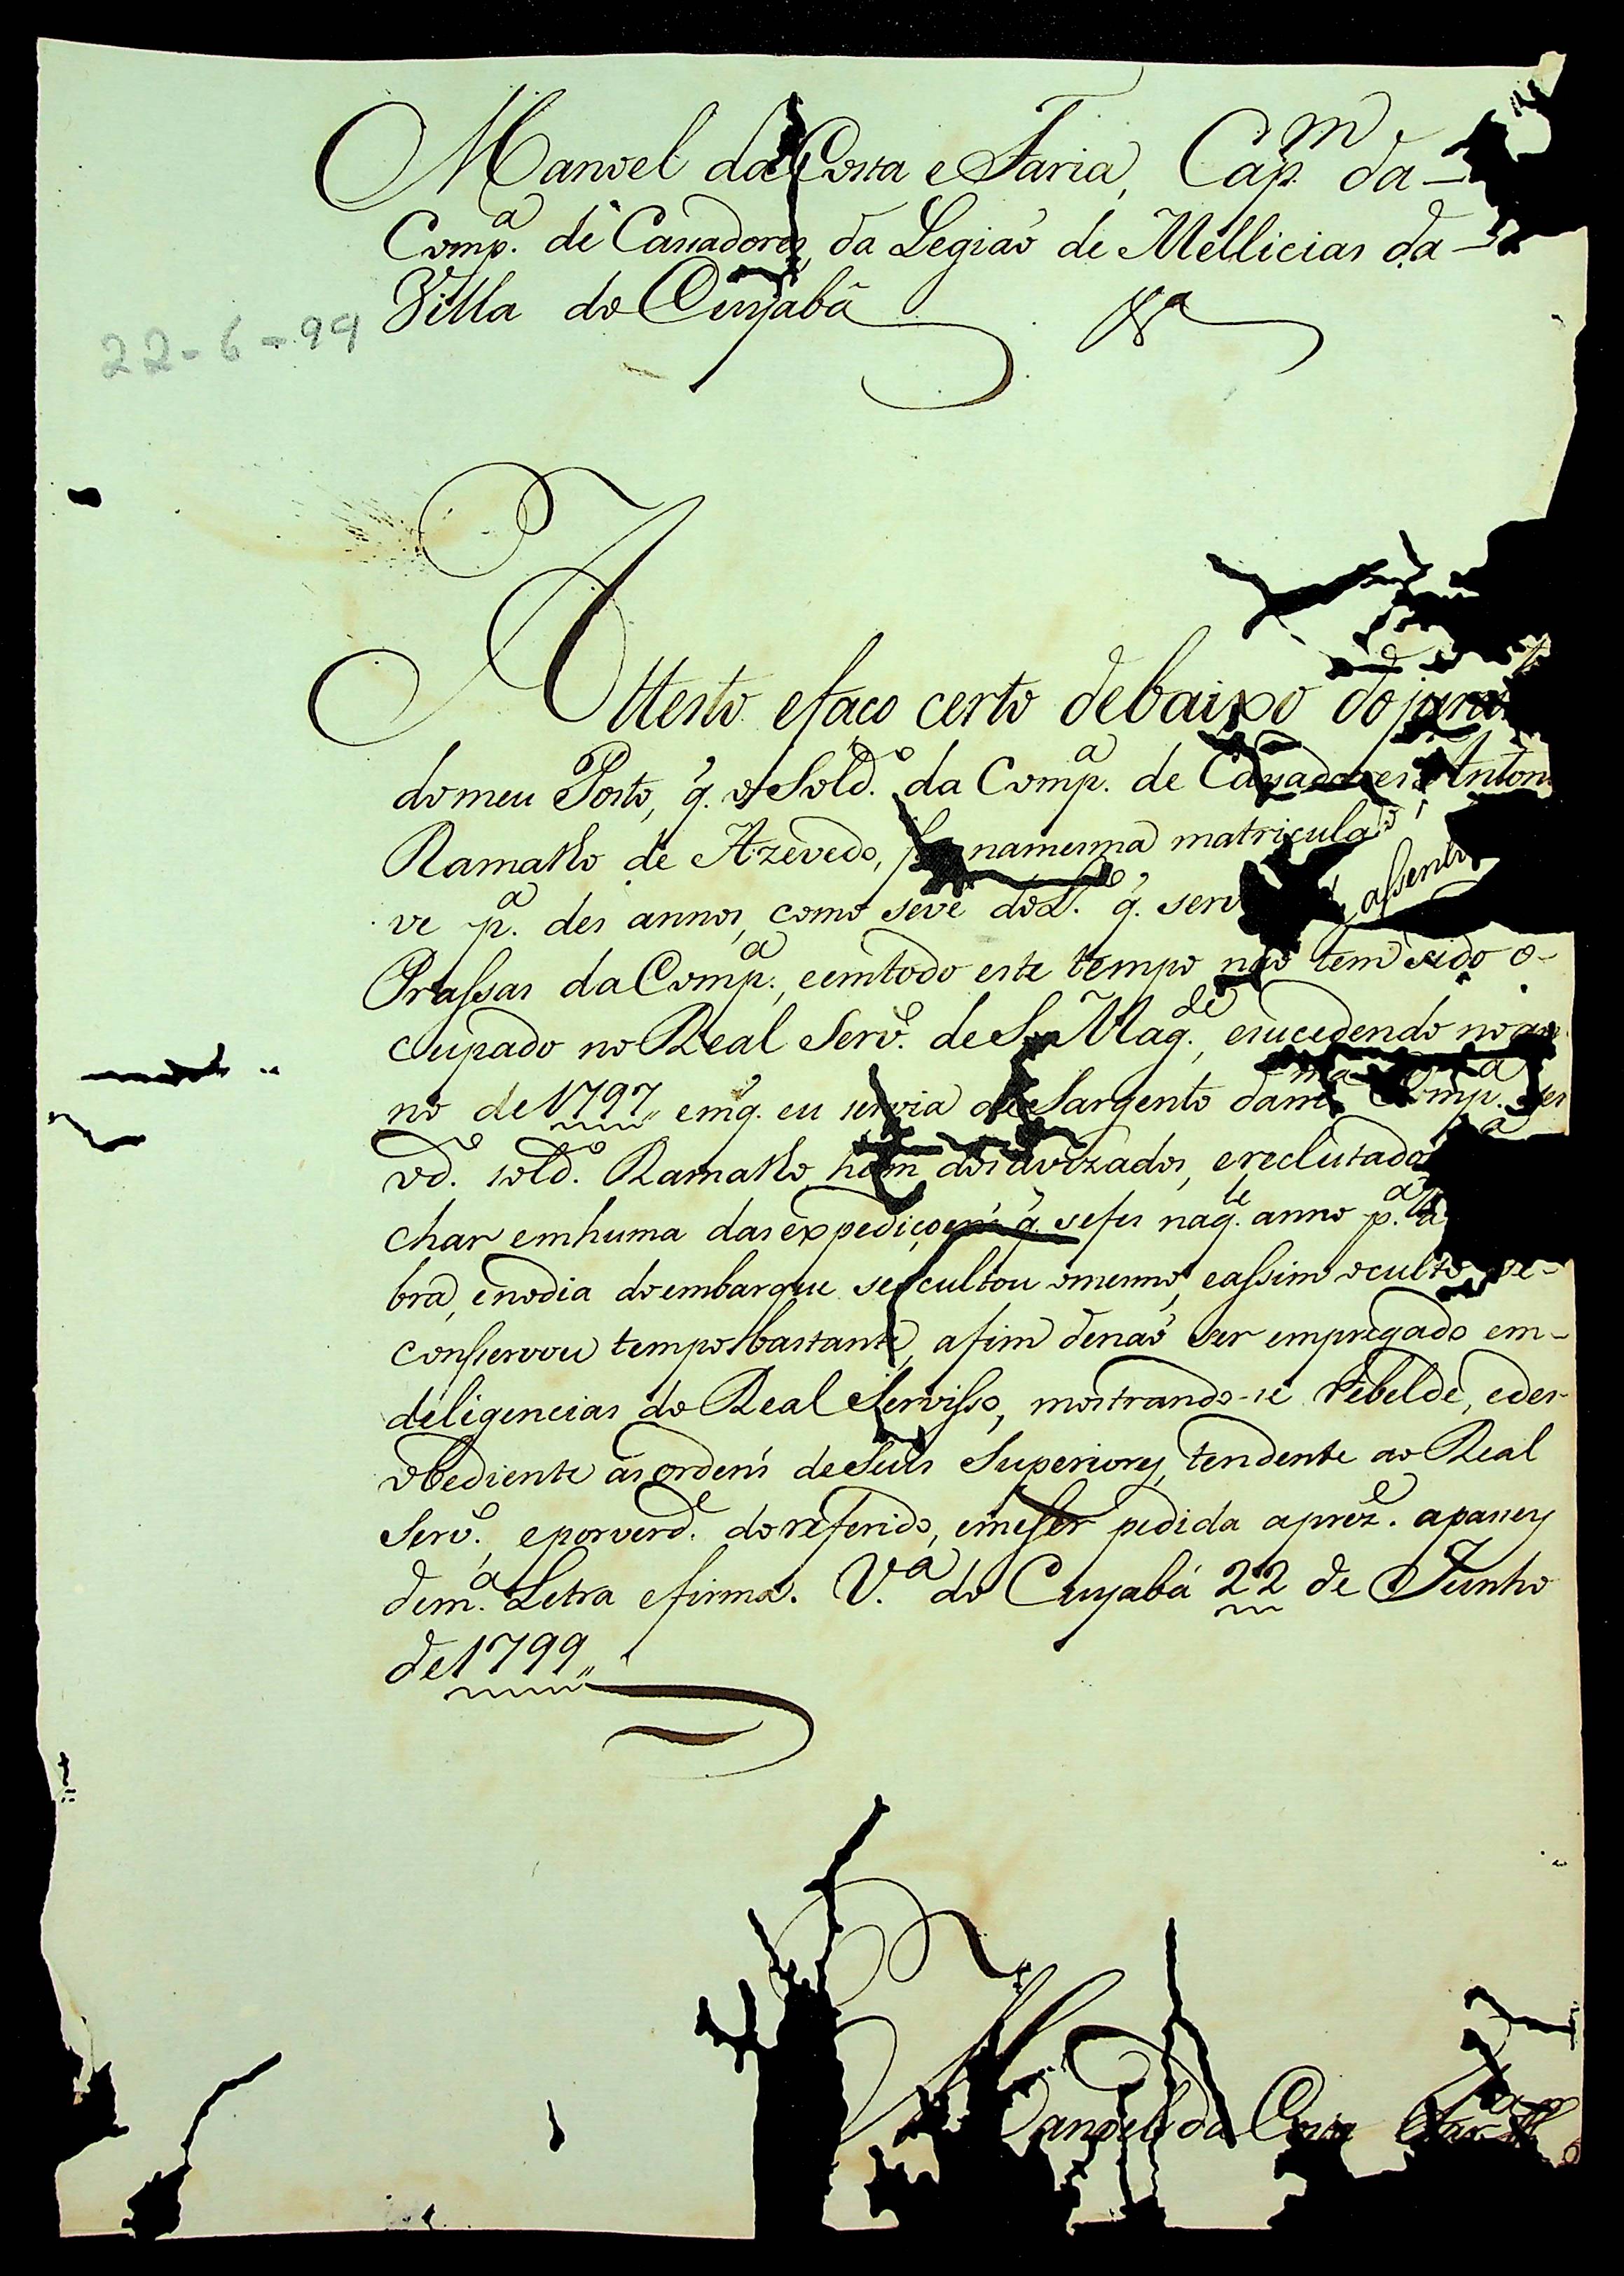 Manoel da Costa e Faria, Cap.m da
Comp.a de Cassadores, da Legiaõ de Mellicias da
Villa do Cuyabá &a
22-6-99
Attesto efaco certo debaixo do
domeu Posto, q. o Sold.o da Comp.a de Cassadores Anton
Ramalho de Azevedo, namesma matriculado
ve p.a des annos, como sevê do L.o q. serv assento
Prassas da Comp.a, eemtodo este tempo não tem sido o-
cupado no Real Serv.o de S. Mag.de, esucedendo no an
no de 1797,, emq. eu servia de Sargento dam.ma Comp.a ser
od.o sold.o Ramalho hum dos avizados, ereclutados
char emhuma das expediçoens q. sefes naq.le anno p.a
bra, enodia doembarque seocultou omesmo, eassim oculto se-
conservou tempo bastante, afim denaõ ser empregado em-
deligencias do Real Servisso, mostrando-se rebelde, edes-
obediente as ordens deseus Superiores, tendente ao Real
Serv.o, eporverd.e do referido, emeser pedida aprez.e apassey
dem.a Letra efirma. V.a do Cuyabá 22 de Junho
de 1799,,
Manoel da Costa Faria